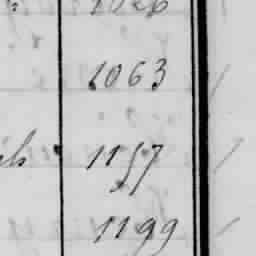 1063
1157
1199